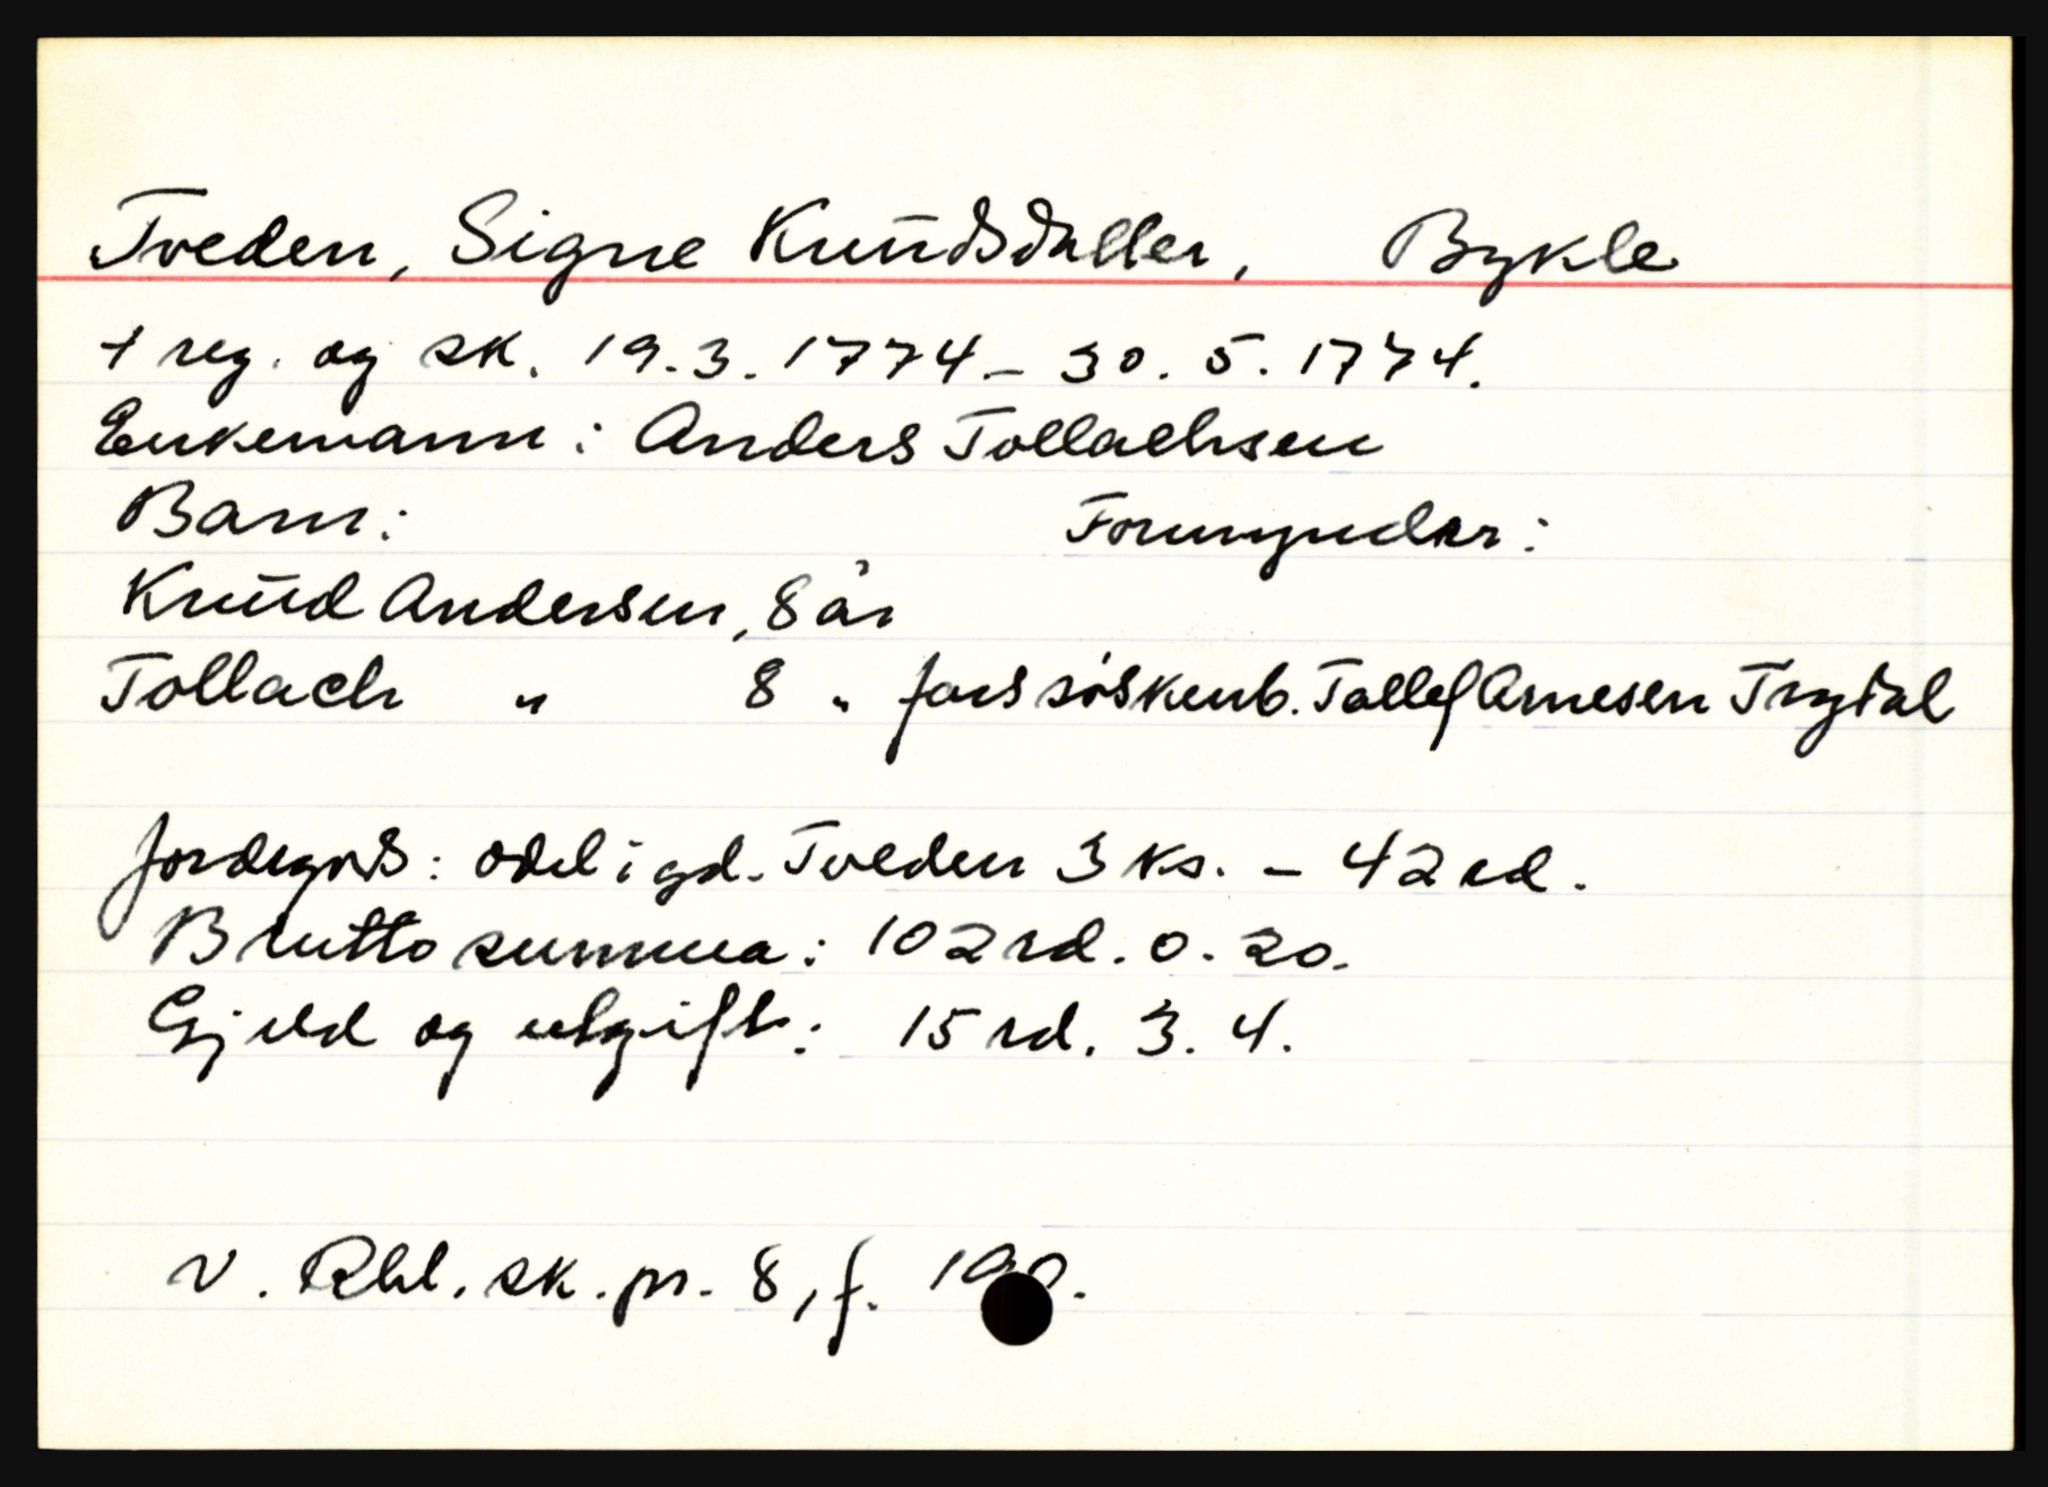 Tveden, Signe Knudsdatter, Bykle
† reg. og sk. 19.3.1774 - 30.5.1774.
Enkemann: Anders Tollachsen
Barn: Formynder:
Knud Andersen, 8 år
Tollach " 8 " fars söskenb. Tollef Arnesen Trydal
Jordegods: odel i gd. Tveden 3 ks. - 42 rd.
Brutto summa: 102 rd. 0. 20.
Gjeld og utgift: 15 rd. 3. 4.
V. Rbl. sk. pr. 8, f.